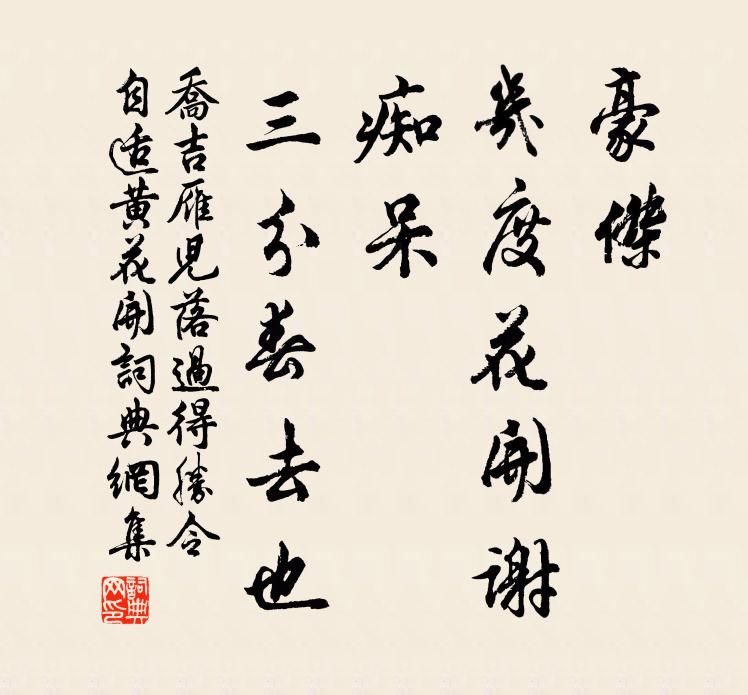 豪傑
幾度花開謝
痴呆
三分春去也
喬吉雁兒落過得勝令
自適黃花開詞典網集
詞典
网印